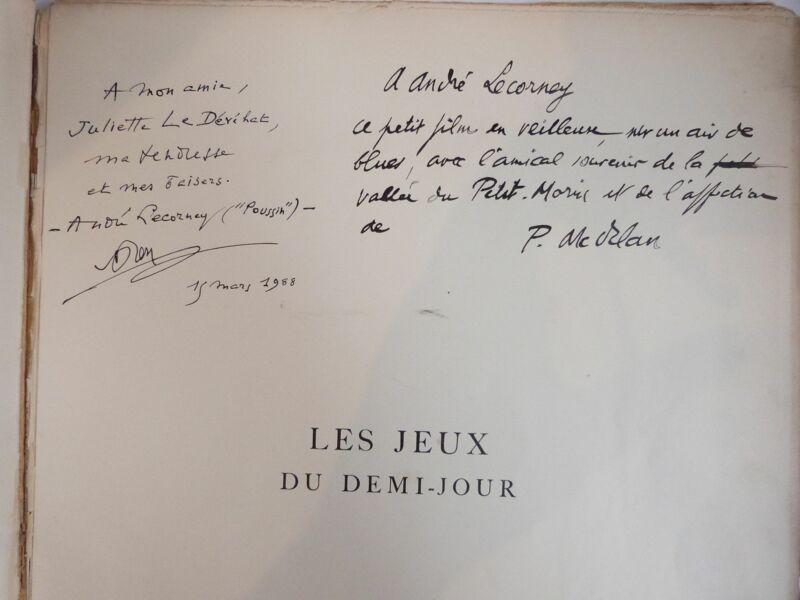 A mon amie,
Juliette Le Dérihat,
ma tendresse
et mes baisers.
- André Lecorney ("Poussin") -
15 mars 1988
A André Lecorney
ce petit film en veilleuse, sur un air de
blues, avec l'amical souvenir de la
vallée du Petit-Morin et de l'affection
de
P. Mc Orlan
LES JEUX
DU DEMI-JOUR